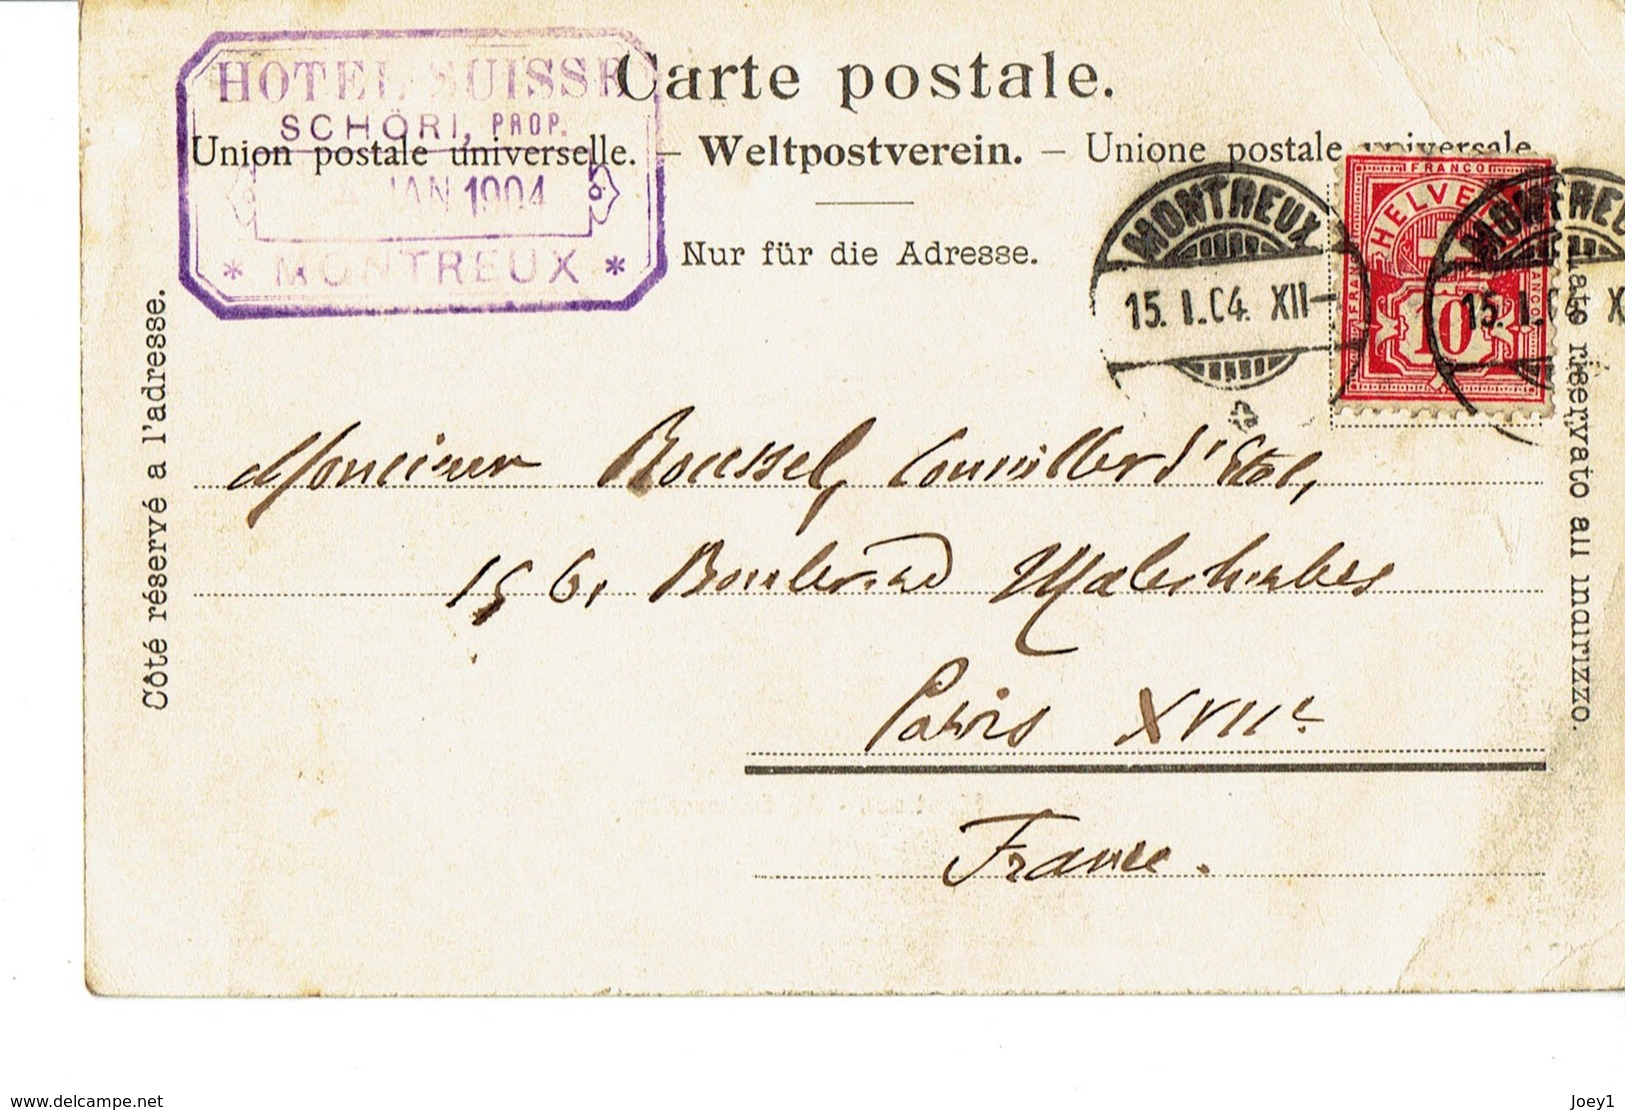 HOTEL SUISSE
SCHÖRI, PROP.
JAN 1904
* MONTREUX *
Carte postale.
Union postale universelle. – Weltpostverein. – Unione postale universale.
Nur für die Adresse.
Côté réservé a l'adresse.
riservato all indirizzo.
MONTREUX
15. I. 04. XII–
FRANCO
HELVETIA
FRANCO
FRANCO
10
MONTREUX
15. I. 04 X
Monsieur Roussel, Conseiller d'Etat,
156, Boulevard Malesherbes
Paris XVIIe
France.
www.delcampe.net
Joey1